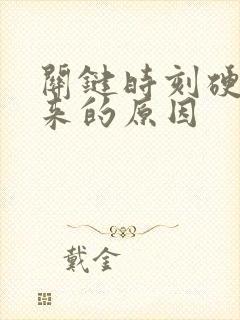 關鍵時刻硬
来的原因
戴金